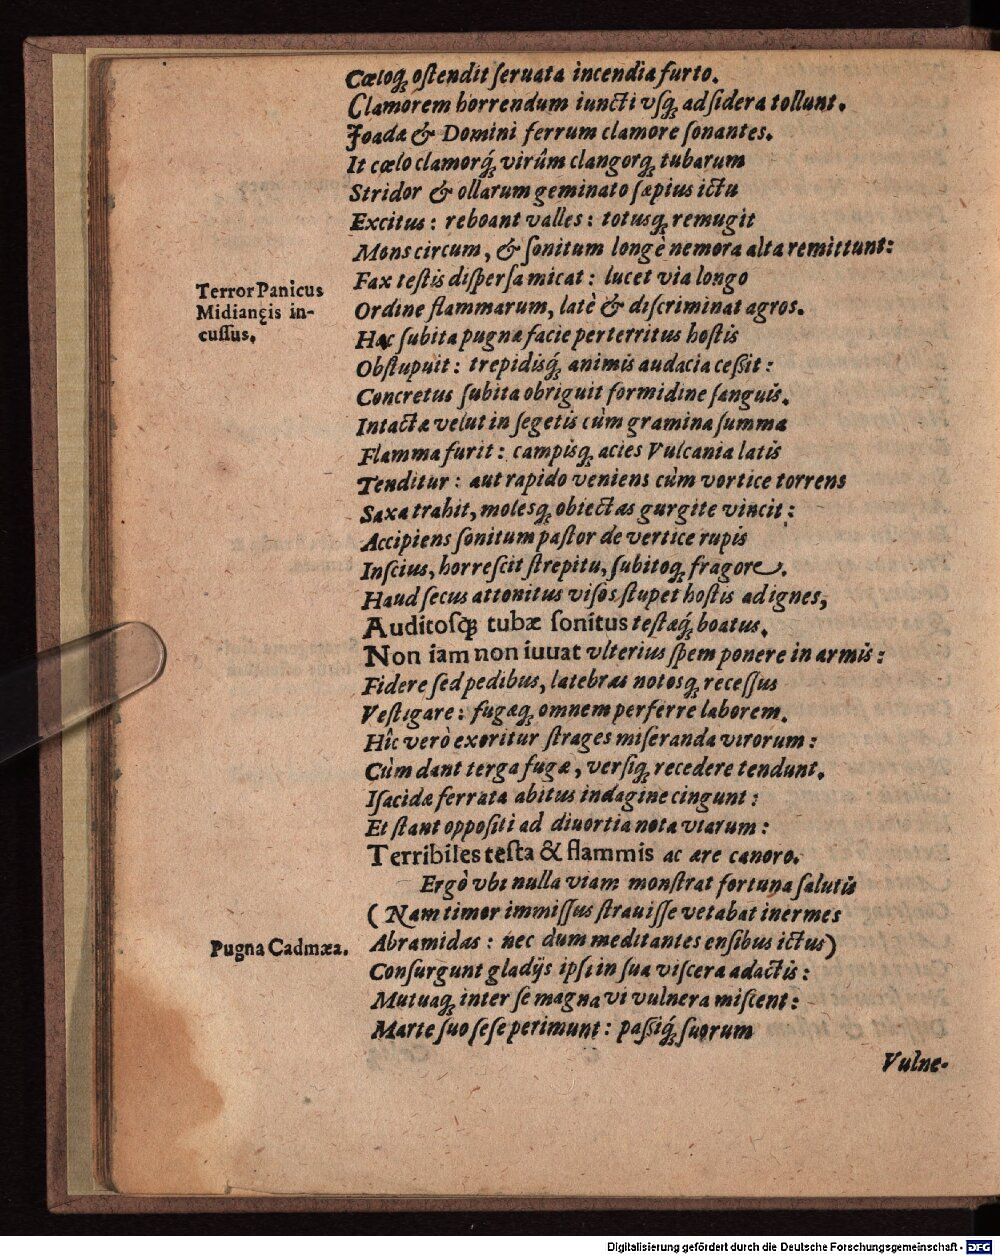 Cœloq́; ostendit seruata incendia furto.
Clamorem horrendum iuncti vsq́; ad sidera tollunt.
Joadæ & Domini ferrum clamore sonantes.
It cœlo clamorq́; virûm clangorq́; tubarum
Stridor & ollarum geminato sæpius ictu
Excitus: reboant valles: totusq́; remugit
Mons circum, & sonitum longè nemora alta remittunt:
Fax testis dispersa micat: lucet via longo
Terror Panicus
Midianęis in-
cussus.
Ordine flammarum, latè & discriminat agros.
Hac subita pugnæ facie perterritus hostis
Obstupuit: trepidisq́; animis audacia ceßit:
Concretus subita obriguit formidine sanguis.
Intactæ velut in segetis cùm gramina summa
Flamma furit: campisq́; acies Vulcania latis
Tenditur: aut rapido veniens cùm vortice torrens
Saxa trahit, molesq́; obiectas gurgite vincit:
Accipiens sonitum pastor de vertice rupis
Inscius, horrescit strepitu, subitoq́; fragore.
Haud secus attonitus visos stupet hostis ad ignes,
Auditosq́; tubæ sonitus testæq́; boatus.
Non iam non iuuat vlterius spem ponere in armis:
Fidere sed pedibus, latebras notosq́; recessus
Vestigare: fugæq́; omnem perferre laborem.
Hîc verò exoritur strages miseranda virorum:
Cùm dant terga fugæ, versiq́; recedere tendunt.
Isacidæ ferrata abitus indagine cingunt:
Et stant oppositi ad diuortia nota viarum:
Terribiles testa & flammis ac ære canoro.
Ergò vbi nulla viam monstrat fortuna salutis
(Nam timor immissus strauisse vetabat inermes
Pugna Cadmæa.
Abramidas: nec dum meditantes ensibus ictus)
Consurgunt gladijs ipsi in sua viscera adactis:
Mutuaq́; inter se magna vi vulnera miscent:
Marte suo sese perimunt: paßiq́; suorum
Vulne-
Digitalisierung gefördert durch die Deutsche Forschungsgemeinschaft - DFG